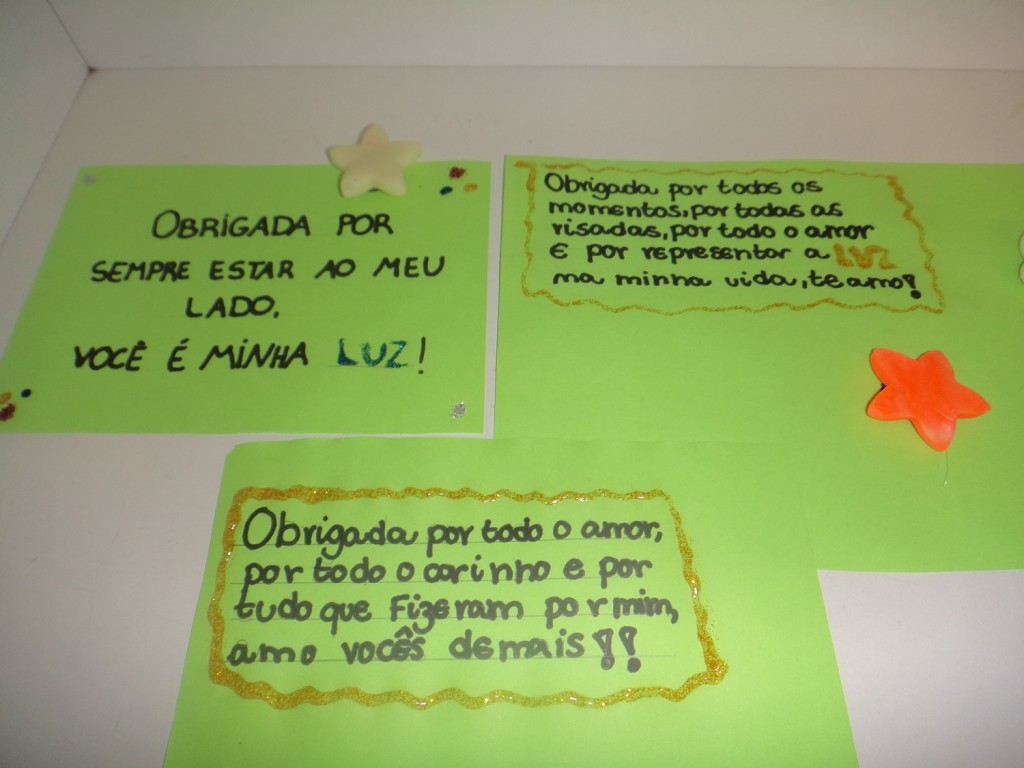 OBRIGADA POR
SEMPRE ESTAR AO MEU
LADO.
VOCÊ É MINHA LUZ!
Obrigada por todos os
momentos, por todas as
risadas, por todo o amor
E por representar a LUZ
na minha vida, te amo!
Obrigada por todo o amor,
por todo o carinho e por
tudo que Fizeram por mim,
amo vocês demais!!